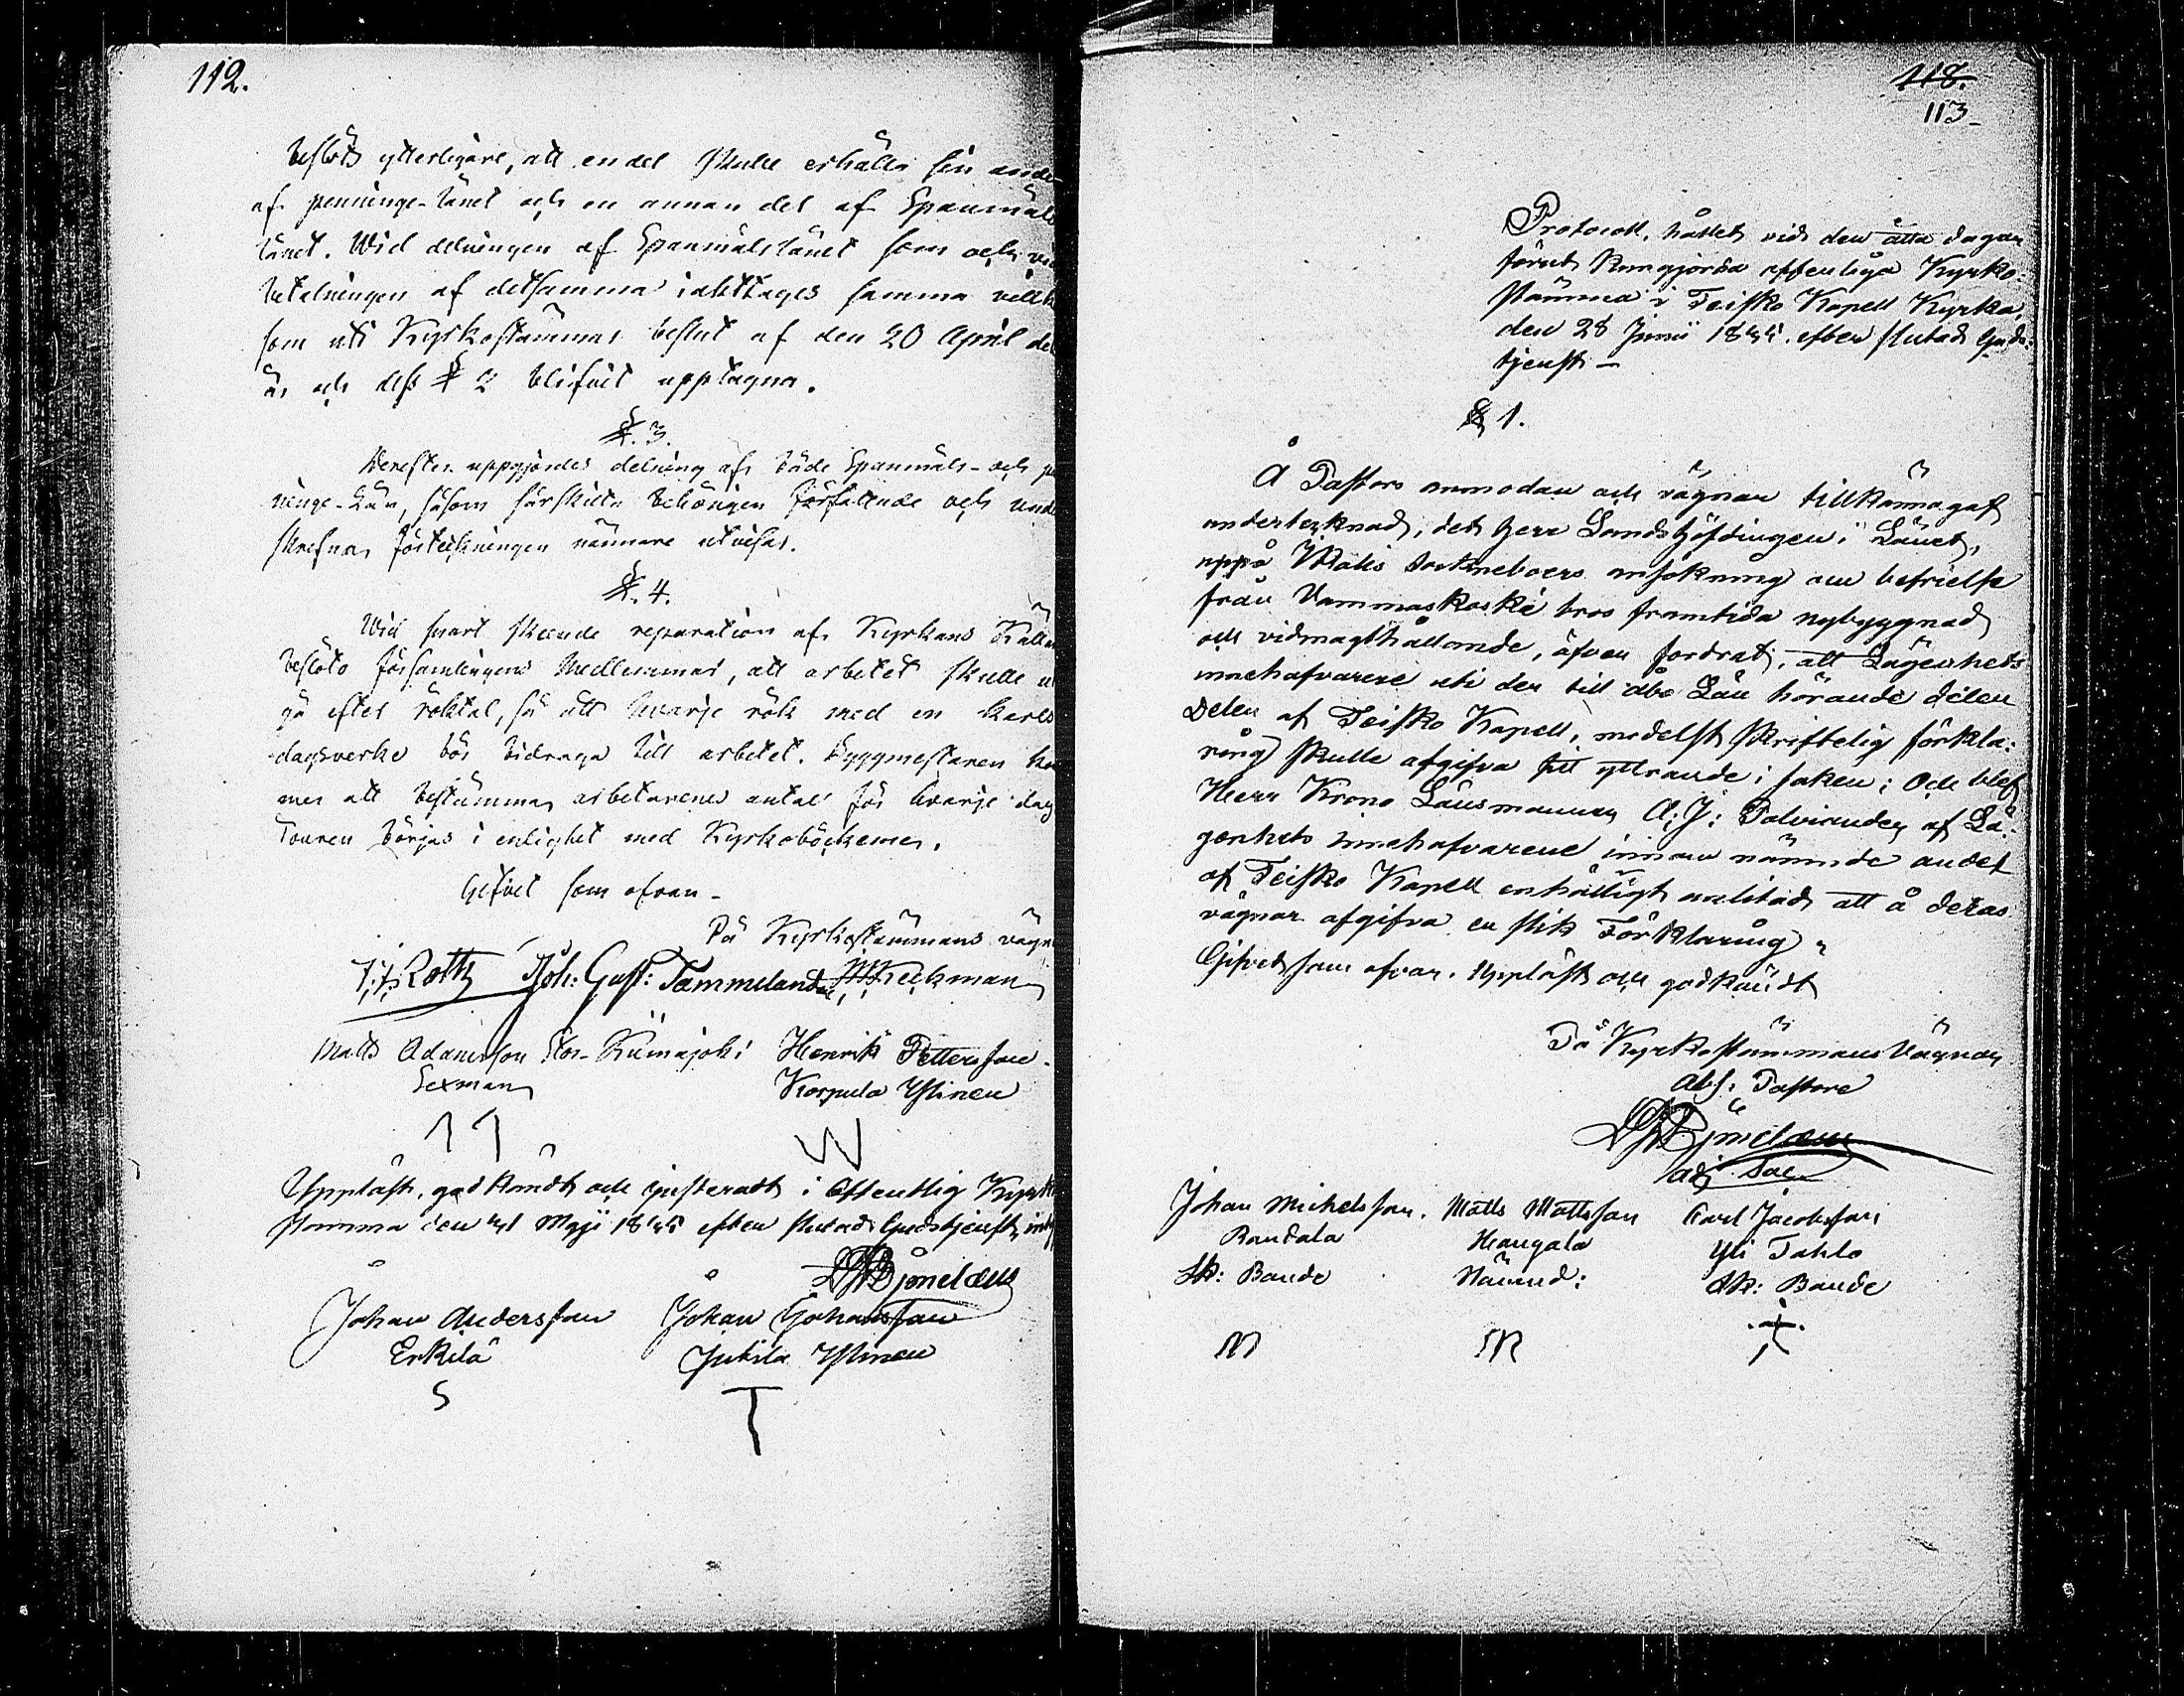 112.
beslöts ytterligare, att en del skulle erhålla sin ande
af penninge-lånet och en annan del af Spanmåls
lånet. Wid delningen af Spanmålslånet som och vid
betalningen af detsamma iakttages samma villk
som uti Kyrkostämmas beslut af den 20 April de
år och dess § 2 blifvit upptagna.
§. 3.
Derefter uppgjordes delning af både Spanmåls- och pe
ninge-Lån, såsom särskilta behörigen författade och unde
skrefna förteckningen närmare utvisar.
§. 4.
Wid snart skeende reparation af Kyrkans Källa
beslöto församlingens Medlemmar, att arbetet skulle u
gå efter röktal, så att hvarje rök med en karls
dagsverke bör bidraga till arbetet. Byggmestaren ko
mer att bestämma arbetarenes antal för hvarje dag
Touren börjas i enlighet med Kyrkoböckerne.
Gifvet som ofvan -
På Kyrkostämmans vägn
Roth Joh: Gust: Tammelander Heckman
Matts Adamsson Stor-Kumajoki Henrik Pettersson
Sexman Korpula Ylinen
W
Uppläst, godkändt och justeradt i Offentlig Kyrko
stämma den 41 Maji 1845 efter slutad Gudstjenst, int
Björnelund
Johan Andersson Johan Johansson
Erkilä Jutila Ylinen
S T
118.
113
Protocoll, hållet vid den åtta dagar
förut kungjorda offentliga Kyrko-
stämma i Teisko Kapell Kyrka,
den 28 Junii 1845. efter slutad Guds-
tjenst -
§ 1.
Å Pastors anmodan och vägnar tillkännagaf
undertecknad, det Herr Landshöfdingen i Länet,
uppå Wälis ansökning om befrielse
från Vammaskoski bros framtida nybyggnad
och vidmagthållande, äfven fordrat, att Lägenhets
innehafvarene uti der till Åbo Län hörande delen
Delen af Teisko Kapell, medelst skriftelig förkla-
ring skulle afgifva sitt yttrande i saken; Och blef
Herr Krono Länsmannen A: J: Palviander af Lä-
genhets innehafvarene innom nämnde andel
af Teisko Kapell enhälligt anlitad att å deras
vägnar afgifva en slik Förklaring.
Gifvet som ofvan. Uppläst och godkändt
På Kyrkostämmans Vägnar
Abs: Pastore
Björnelund
Adj Sac
Johan Michelsson. Matts Mattsson Karl Jacobsson
Randala Haugala Yli Pahlo
Sk: Bonde Nämnd: Sk: Bonde
M M